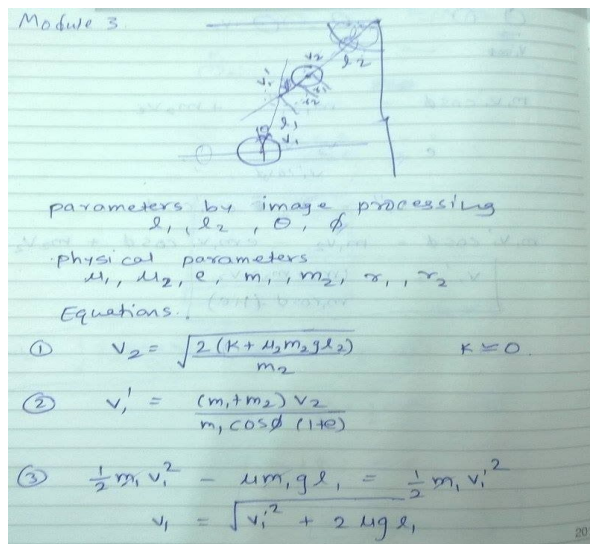 Module 3.
v₂
l₂
v₁'
l₁
v₁
parameters by image processing
l₁, l₂, θ, φ
physical parameters
μ₁, μ₂, e, m₁, m₂, r₁, r₂
Equations.
① v₂ = √(2(K + μ₂m₂gl₂)/m₂) K ≃ 0.
② v₁' = (m₁+m₂) v₂ / m₁ cosφ (1+e)
③ ½ m₁ v₁² - μm₁gl₁ = ½ m₁ v₁'²
v₁ = √(v₁'² + 2μgl₁)